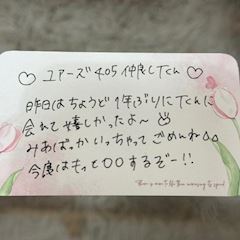 ♡ ユアーズ405 仲良しTくん ♡
昨日はちょうど1年ぶりにTくんに
会れて嬉しかったよ〜
みあばっかいっちゃってごめんね
今度はもっと〇〇するぞー!!